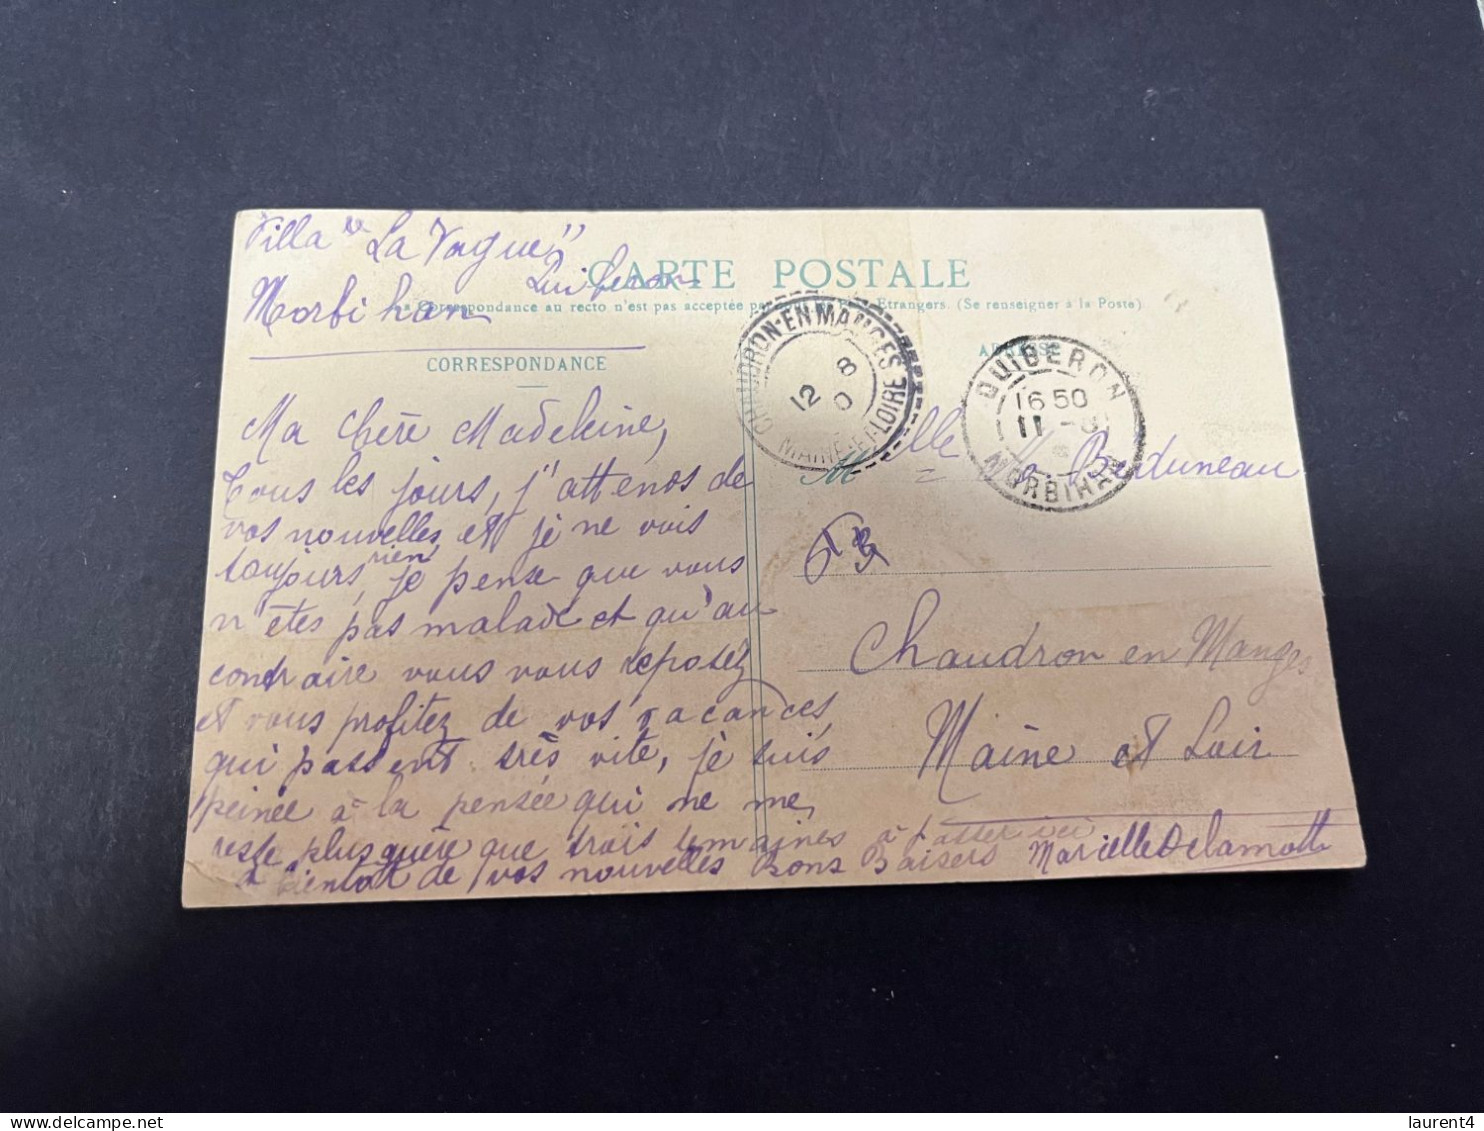 Villa "La Vague"
Quiberon
Morbihan
CARTE POSTALE
La Correspondance au recto n'est pas acceptée par tous les Pays Etrangers. (Se renseigner à la Poste)
CORRESPONDANCE
ADRESSE
CHAUDRON-EN-MAUGES
12 8
MAINE-ET-LOIRE
QUIBERON
16 50
11 -8
MORBIHAN
Ma Chère Madeleine,
Tous les jours, j'attends de
vos nouvelles, et je ne vois
toujours rien, je pense que vous
n'êtes pas malade et qu'au
contraire vous vous reposez
et vous profitez de vos vacances
qui passent très vite, je suis
peinée à la pensée qui ne me
reste plus guère que trois semaines à passer ici
à bientôt de vos nouvelles Bons Baisers Marielle Delamotte
M elle
Chaudron en Manges
Maine et Loir
laurent4